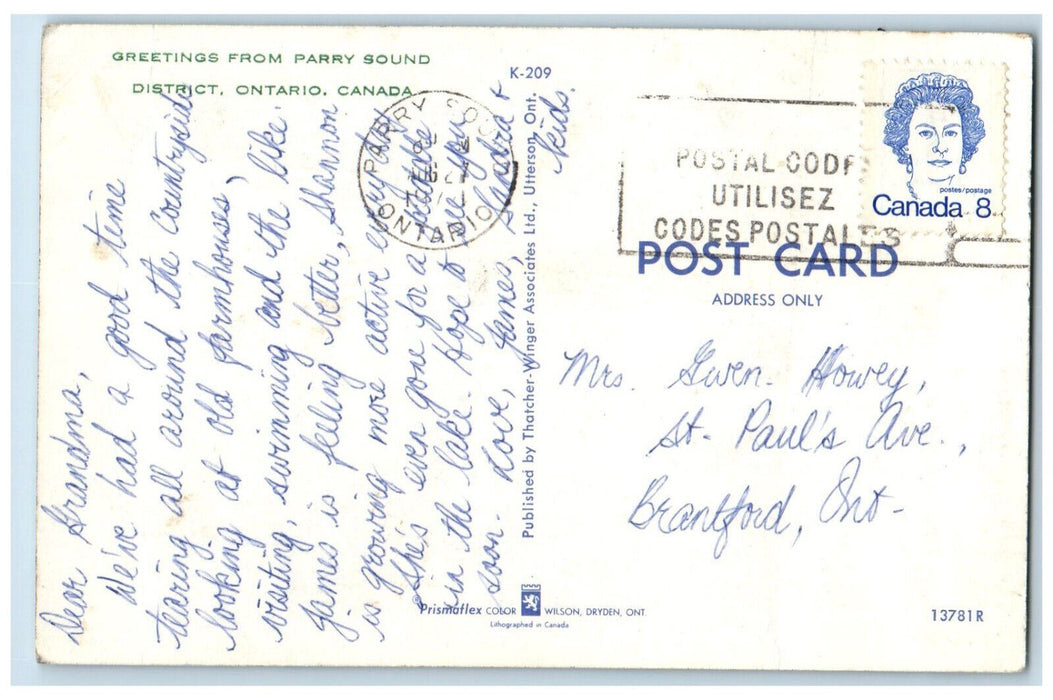 GREETINGS FROM PARRY SOUND
DISTRICT, ONTARIO, CANADA
Dear Grandma,
We've had a good time
tearing all around the Countryside
looking at old farmhouses,
visiting, swimming and the like.
James is feeling better, Shannon
is growing more active every day
She's even gone for a
in the lake. Hope to see you
soon. Love, James, Sandra &
kids.
K-209
Published by Thatcher-Winger Associates Ltd., Utterson, Ont.
PARRY SOUND
ONTARIO
POSTAL CODE
UTILISEZ
CODES POSTALES
postes/postage
Canada 8
POST CARD
ADDRESS ONLY
Mrs. Gwen. Howey,
St. Paul's Ave.,
Brantford, Ont-
©Prismaflex COLOR WILSON, DRYDEN, ONT.
Lithographed in Canada
13781R